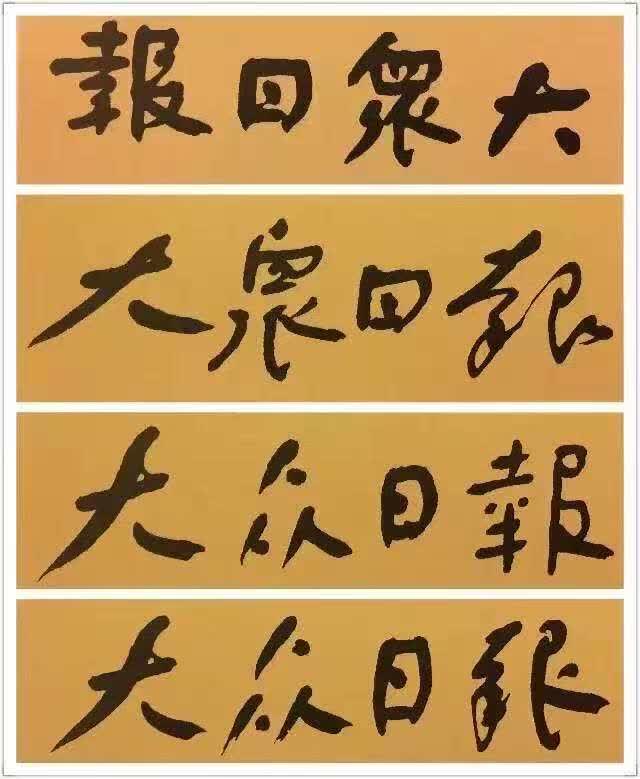 大衆日報
大衆日報
大众日報
大众日報